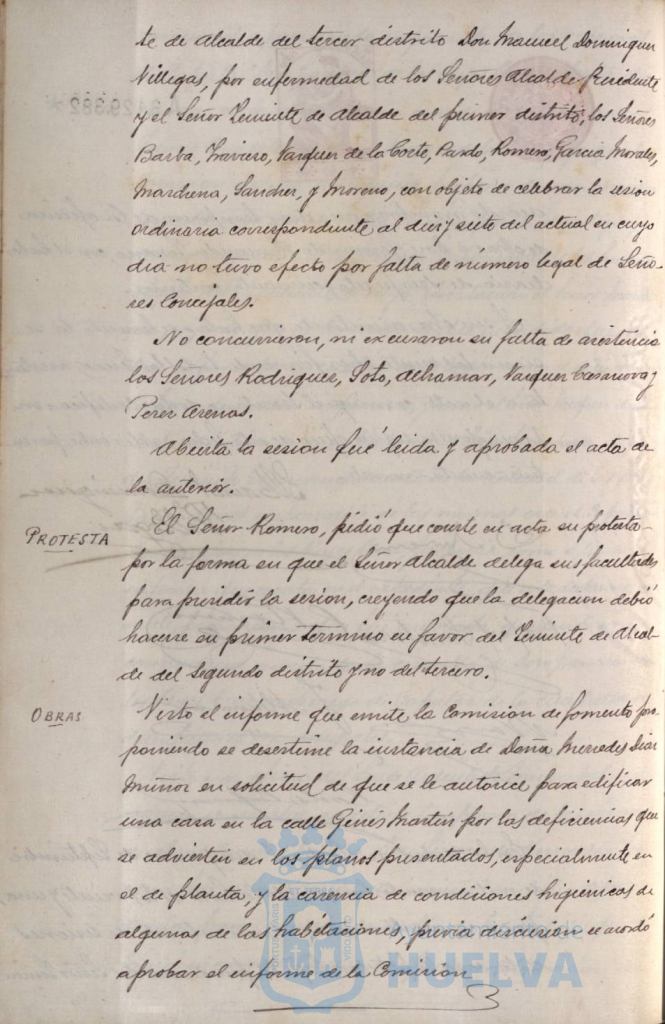 te de Alcalde del tercer distrito Don Manuel Dominguez
Villegas, por enfermedad de los Señores Alcalde Presidente
y el Señor Teniente de Alcalde del primer distrito, los Señores
Barba, Travieso, Vazquez de la Corte, Pardo, Romero, Garcia Morales,
Marchena, Sanchez, y Moreno, con objeto de celebrar la sesion
ordinaria correspondiente al diez y siete del actual en cuyo
dia no tuvo efecto por falta de número legal de Seño-
res Concejales.
No concurrieron, ni excusaron su falta de asistencia
los Señores Rodriguez, Soto, Alhamar, Vazquez Casanova y
Perez Arenas.
Abierta la sesion fué leida y aprobada el acta de
la anterior.
PROTESTA
El Señor Romero, pidió que conste en acta su protesta
por la forma en que el Señor Alcalde delega sus facultades
para presidir la sesion, creyendo que la delegacion debió
hacerse en primer termino en favor del Teniente de Alcal-
de del segundo distrito y no del tercero.
OBRAS
Visto el informe que emite la Comision de fomento pro-
poniendo se desestime la instancia de Doña Mercedes Diaz
Muñoz en solicitud de que se le autorice para edificar
una casa en la calle Ginés Martin por las deficiencias que
se advierten en los planos presentados, especialmente en
el de planta, y la carencia de condiciones higiénicas de
algunas de las habitaciones, previa discusion se acordó
aprobar el informe de la Comision
Ayuntamiento de
HUELVA